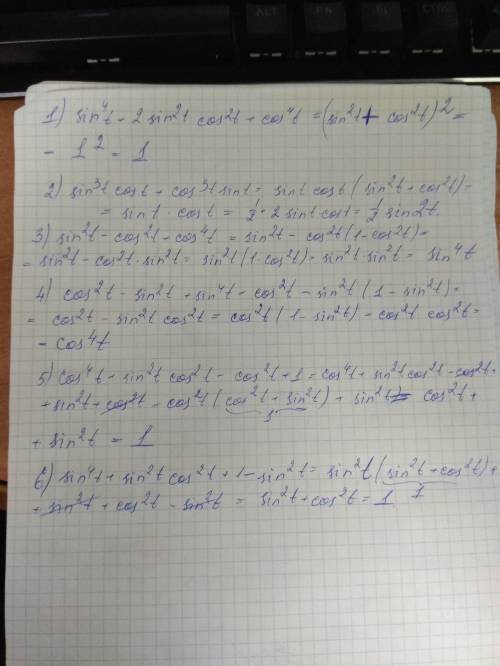 ALT
FN
1) sin⁴t + 2 sin²t cos²t + cos⁴t = (sin²t + cos²t)² =
- 1² = 1
2) sin³t cost + cos³t sint = sint cost (sin²t + cos²t) -
= sint · cost = 1/2 · 2 sint cost = 1/2 sin2t.
3) sin²t - cos²t + cos⁴t = sin²t - cos²t (1 - cos²t) =
= sin²t - cos²t · sin²t = sin²t (1 - cos²t) = sin²t · sin²t = sin⁴t
4) cos²t - sin²t + sin⁴t = cos²t - sin²t (1 - sin²t) =
= cos²t - sin²t cos²t = cos²t (1 - sin²t) - cos²t cos²t =
- cos⁴t
5) cos⁴t + sin²t cos²t - cos²t + 1 = cos⁴t + sin²t cos²t - cos²t +
+ sin²t + cos²t - cos²t (cos²t + sin²t) + sin²t = cos²t +
1
+ sin²t = 1
6) sin⁴t + sin²t cos²t + 1 - sin²t = sin²t (sin²t + cos²t) +
1
+ sin²t + cos²t - sin²t = sin²t + cos²t = 1